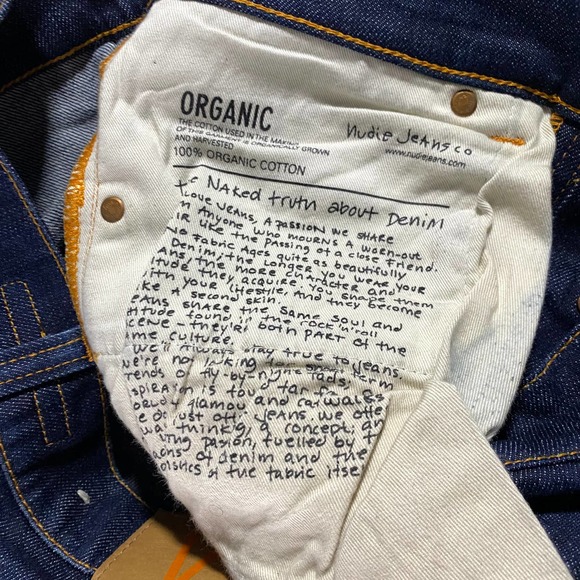 ORGANIC
THE COTTON USED IN THE MAKING
OF THIS GARMENT IS ORGANICALLY GROWN
AND HARVESTED
100% ORGANIC COTTON
Nudie Jeans co
www.nudiejeans.com
Naked truth about Denim
Love Jeans, A passion we share
Anyone who mourns a worn-out
like the passing of a close friend.
Fabric Ages quite as beautifully
Denim, the longer you wear your
the more character and
they acquire. You shape them
your lifestyle. And they become
a second skin.
share the same soul and
found in the rock'n'roll
they're both part of the
culture.
always stay true to Jeans
we're not looking for short-term
fly-by
is found far fr
glamour and catwalks
Jeans, we offe
thinking, a concept, an
passion, fuelled by t
of denim and the
of the fabric itse